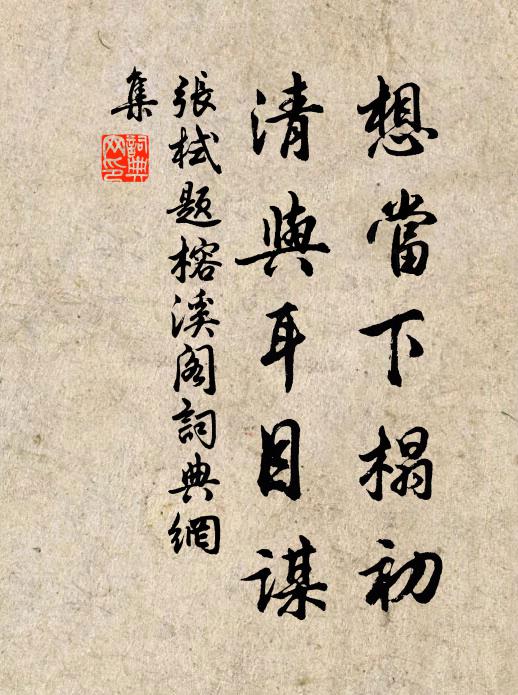 想當下榻初
清與耳目謀
張栻題榕溪閣詞典網
集
詞典
网印